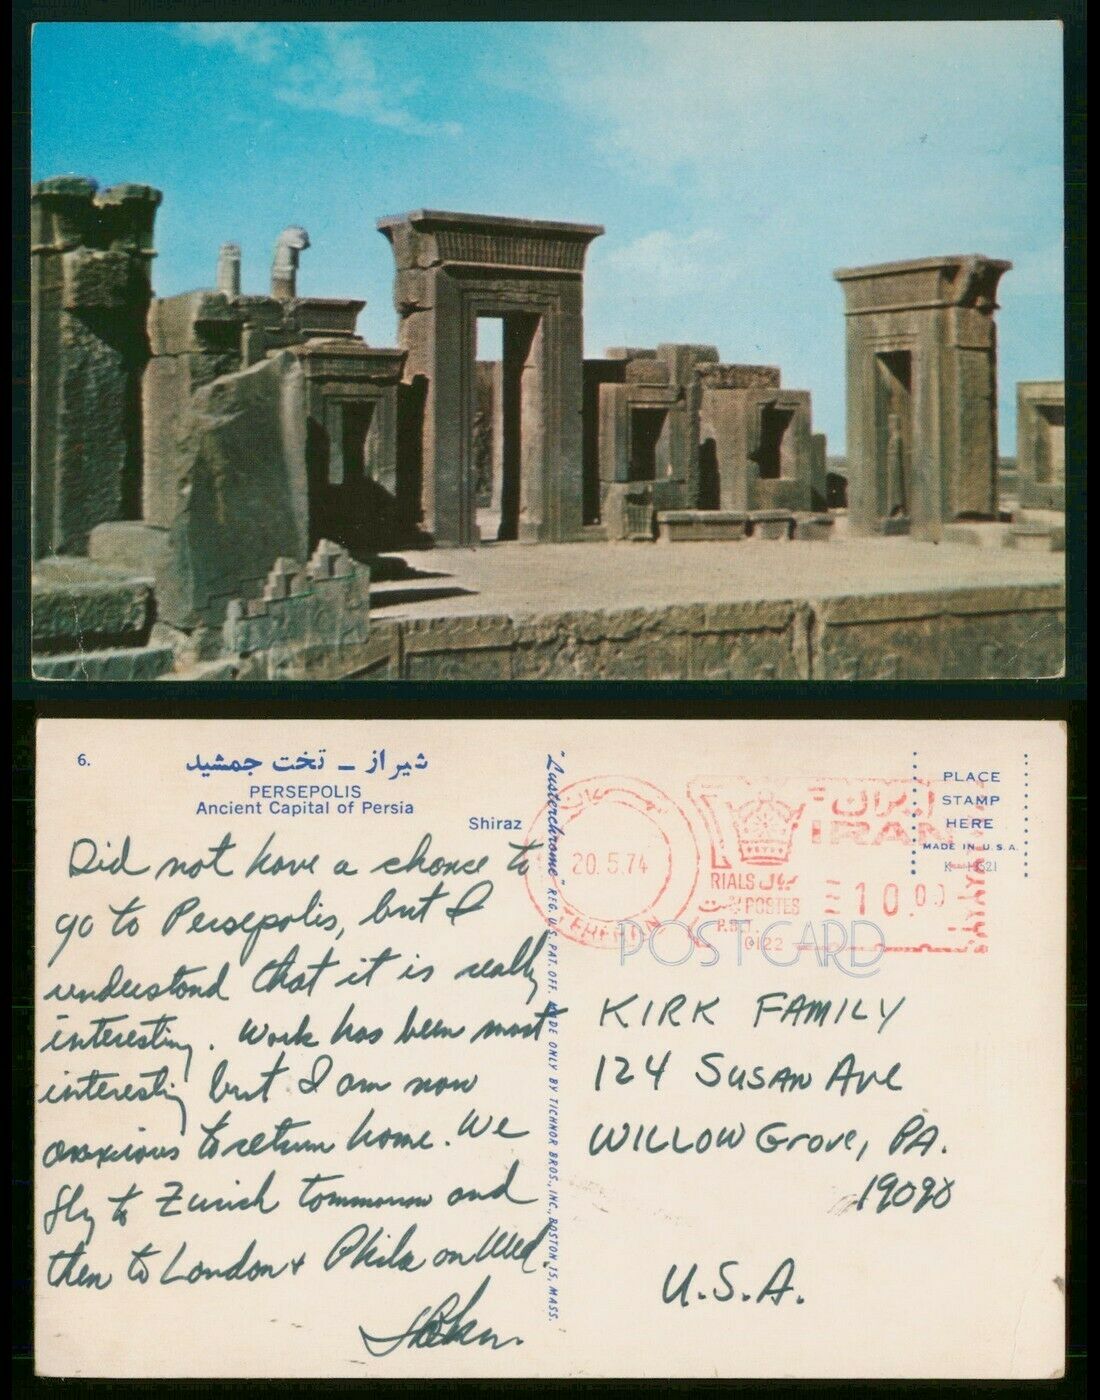 6.
شیراز ـ تخت جمشید
PERSEPOLIS
Ancient Capital of Persia
Shiraz
Did not have a chance to
go to Persepolis, but I
understand that it is really
interesting. Work has been most
interesting but I am now
anxious to return home. We
fly to Zurich tommorrow and
then to London + Phila on Wed.
"Lusterchrome" REG. U.S. PAT. OFF. MADE ONLY BY TICHNOR BROS., INC., BOSTON 15, MASS.
20.5.74
TEHERAN
ایران
IRAN
RIALS ریال
POSTES
10.00
0122
PLACE
STAMP
HERE
MADE IN U.S.A.
POST CARD
KIRK FAMILY
124 SUSAN AVE
WILLOW GROVE, PA.
19090
U.S.A.